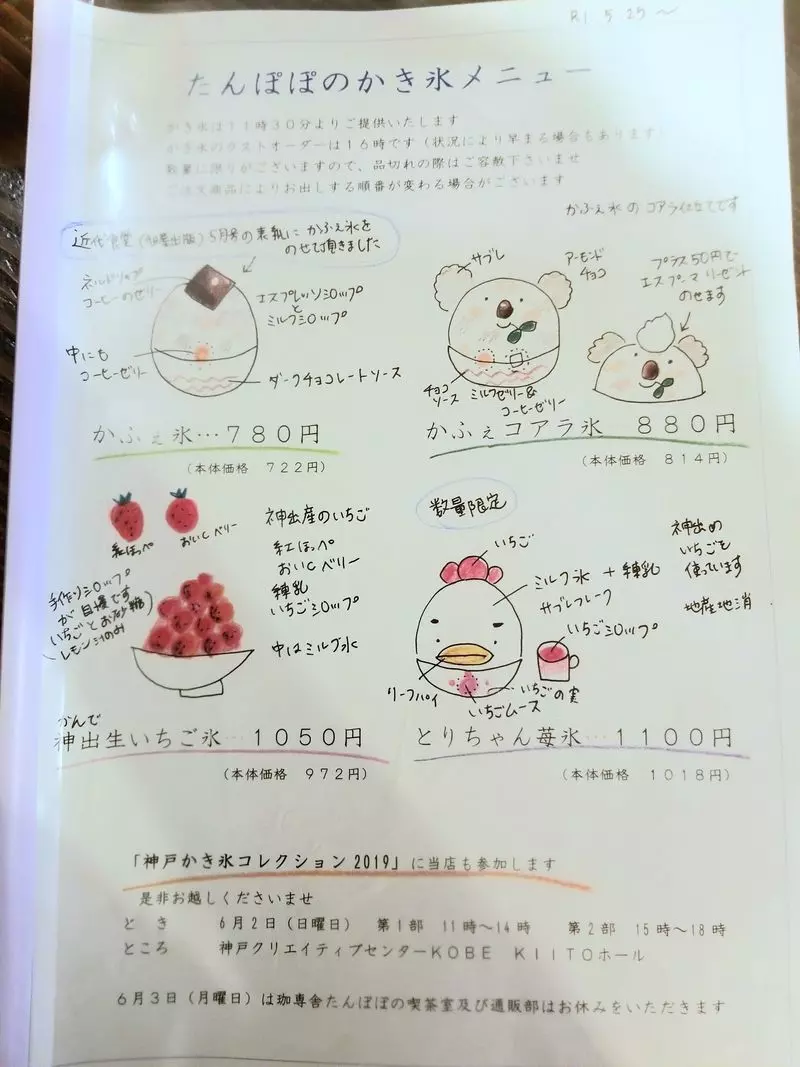 R1 5 25〜
たんぽぽのかき氷メニュー
かき氷は11時30分よりご提供いたします
かき氷のラストオーダーは16時です（状況により早まる場合もあります）
数量に限りがございますので、品切れの際はご容赦下さいませ
ご注文商品によりお出しする順番が変わる場合がございます
かふぇ氷のコアラ仕立てです
近代食堂(旭屋出版)5月号の表紙に かふぇ氷を
のせて頂きました
ネルドリップ
コーヒーのゼリー
エスプレッソシロップ
と
ミルクシロップ
中にも
コーヒーゼリー
ダークチョコレートソース
かふぇ氷…780円
（本体価格 722円）
サブレ
アーモンド
チョコ
プラス50円で
エスプーマ
のせます
チョコ
ソース
ミルクゼリー&
コーヒーゼリー
かふぇコアラ氷 880円
（本体価格 814円）
紅ほっぺ
おいCベリー
神出産のいちご
紅ほっぺ
おいCベリー
練乳
いちごシロップ
中はミルク氷
手作りシロップ
が自慢です
いちごとお砂糖
レモン汁のみ
かんで
神出生いちご氷…1050円
（本体価格 972円）
数量限定
いちご
ミルク氷 + 練乳
サブレフレーク
いちごシロップ
神出の
いちごを
使っています
地産地消
リーフパイ
いちごムース
いちごの実
とりちゃん苺氷…1100円
（本体価格 1018円）
「神戸かき氷コレクション2019」に当店も参加します
是非お越しくださいませ
とき 6月2日（日曜日） 第1部 11時〜14時 第2部 15時〜18時
ところ 神戸クリエイティブセンターKOBE KIITOホール
6月3日（月曜日）は珈専舎たんぽぽの喫茶室及び通販部はお休みをいただきます